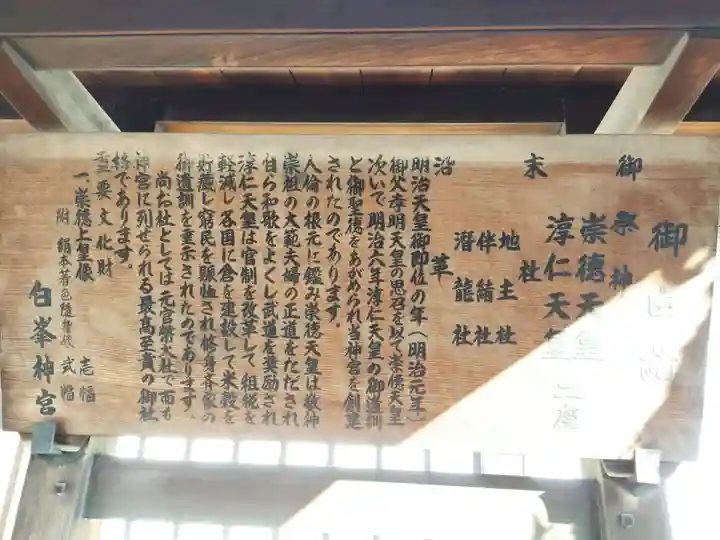 御由緒
御祭神
崇徳天皇
淳仁天皇 二座
末社
地主社
伴緒社
潜龍社
沿革
明治天皇御即位の年(明治元年)
御父孝明天皇の思召を以て崇徳天皇
次いで明治六年淳仁天皇の御遺訓
と御聖徳をあがめられ当神宮を創建
されたのであります。
人倫の根元に鑑み崇徳天皇は敬神
崇祖の大範夫婦の正道をただされ
甘ら和歌をよくし武道を奨励され
淳仁天皇は官制を改革して租税を
軽減し各国に倉を建設して米穀を
貯蔵し窮民を賑恤され修身斉家の
御遺訓を垂示されたのであります。
尚お社としては元官幣大社で而も
神宮に列せられる最高至貴の御社
格であります。
重要文化財
一、崇徳上皇像 壱幅
附 絹本著色随身像 弐幅
白峯神宮